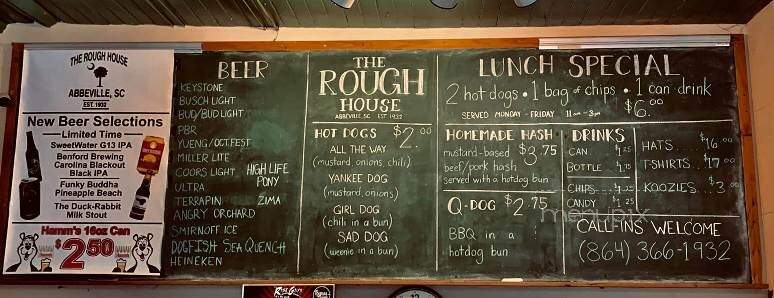 THE ROUGH HOUSE
ABBEVILLE, SC
EST. 1932
New Beer Selections
Limited Time
SweetWater G13 IPA
Benford Brewing
Carolina Blackout
Black IPA
Funky Buddha
Pineapple Beach
The Duck-Rabbit
Milk Stout
Hamm's 16oz Can
$2.50
BEER
KEYSTONE
BUSCH LIGHT
BUD/BUD LIGHT
PBR
YUENG/OCT.FEST
MILLER LITE
COORS LIGHT
ULTRA
TERRAPIN
ANGRY ORCHARD
SMIRNOFF ICE
DOGFISH SEA QUENCH
HEINEKEN
HIGH LIFE
PONY
ZIMA
THE
ROUGH
HOUSE
ABBEVILLE, SC EST 1932
HOT DOGS $2.00
ALL THE WAY
(mustard, onions, chili)
YANKEE DOG
(mustard, onions)
GIRL DOG
(chili in a bun)
SAD DOG
(weenie in a bun)
LUNCH SPECIAL
2 hot dogs • 1 bag of chips • 1 can drink
$6.00
SERVED MONDAY - FRIDAY 11am - 3pm
HOMEMADE HASH
mustard-based $3.75
beef/pork hash
served with a hotdog bun
Q-DOG $2.75
BBQ in a
hotdog bun
DRINKS
CAN
BOTTLE
CHIPS
CANDY
HATS $16.00
T-SHIRTS $17.00
KOOZIES $3.00
CALL-INS WELCOME
(864) 366-1932
menupix